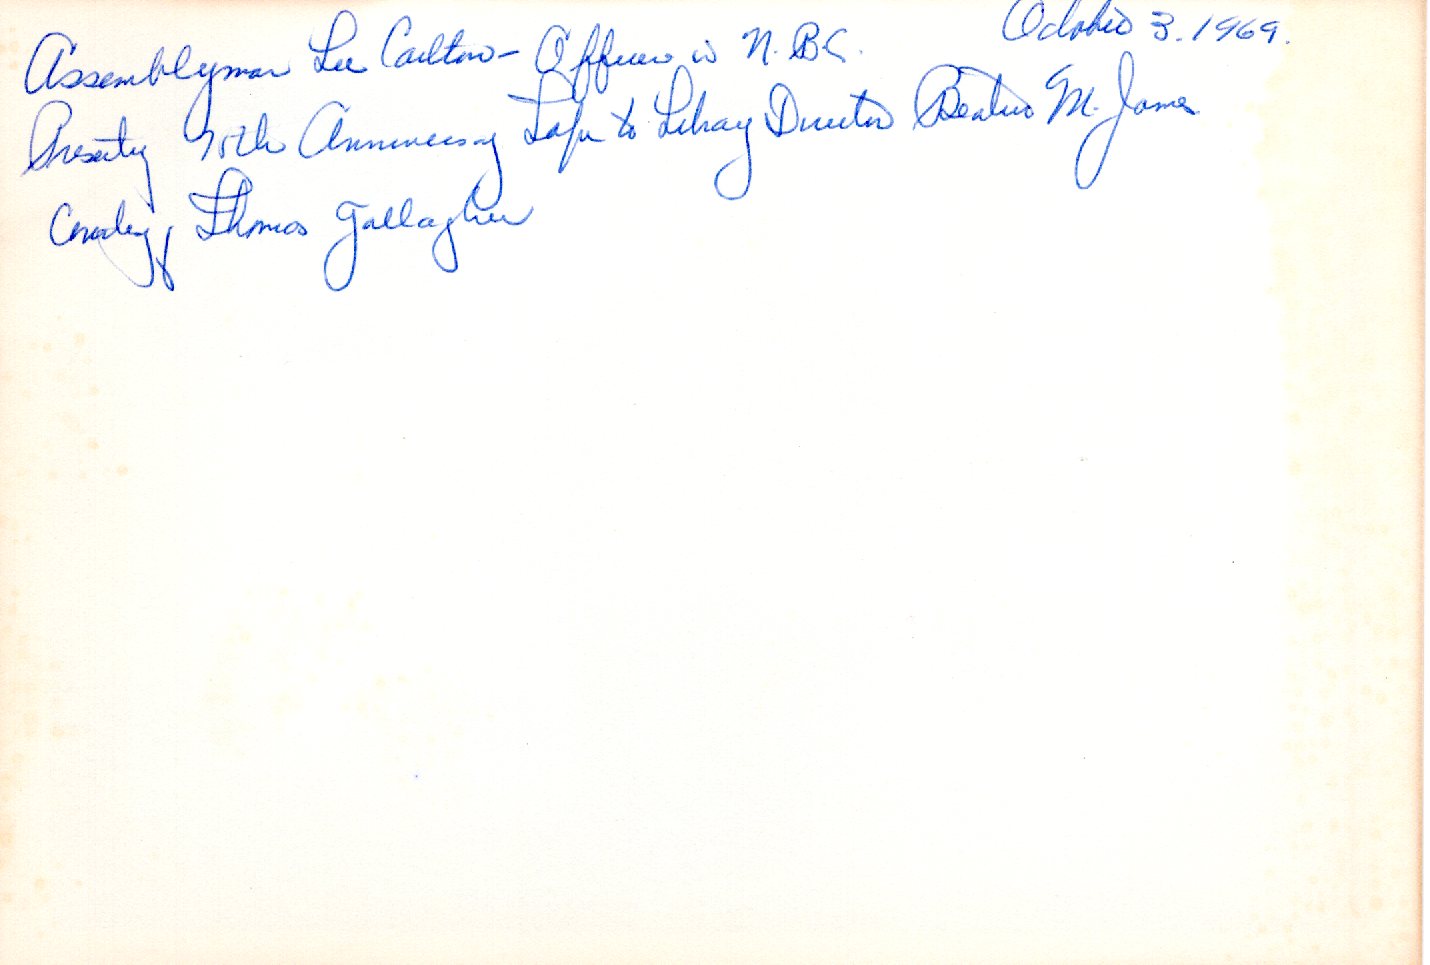 October 3. 1969.
Assemblyman Lee Carlton - Officer in N.B.C.
Presenting Anniversary Tape to Library Director Beatrice M. James
Thomas Gallagher